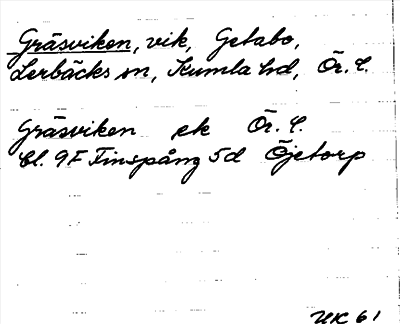 Gräsviken, vik, Getabo,
Lerbäcks sn, Kumla hd, Ör. l.
Gräsviken ek Ör. l.
Bl. 9F Finspång 5d Öjetorp
UK 61